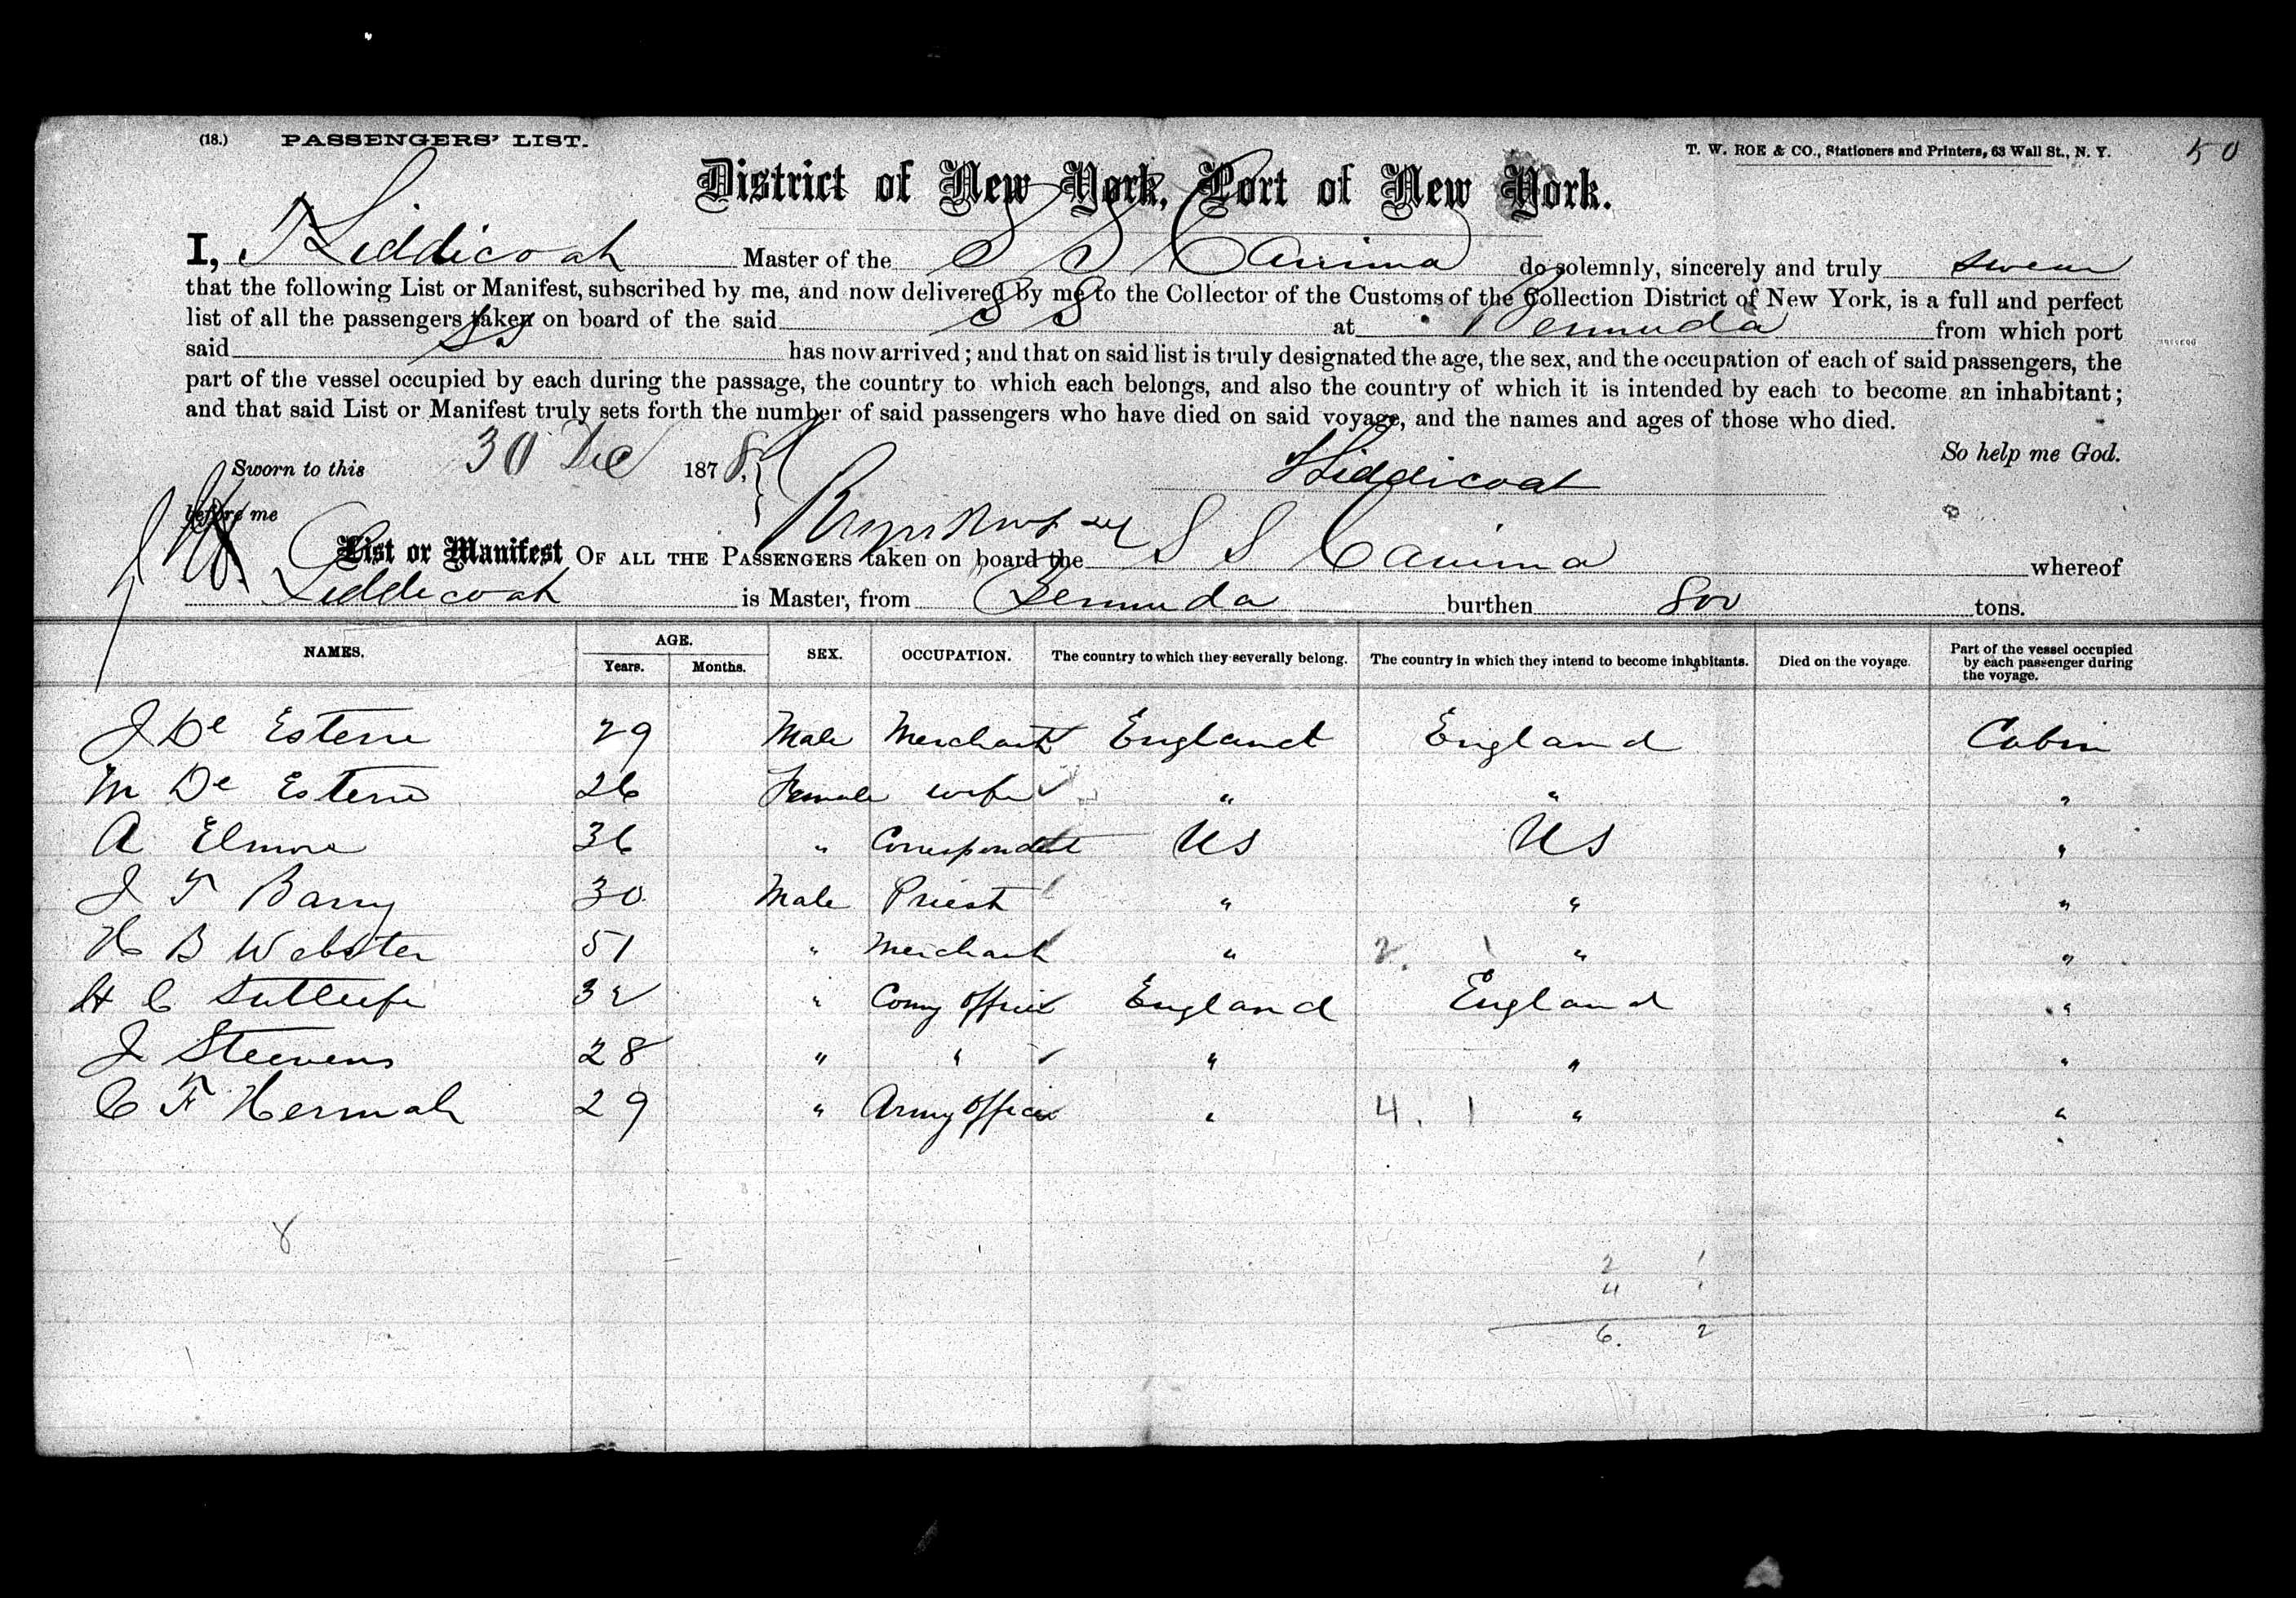 (18.) PASSENGERS' LIST. T. W. ROE & CO., Stationers and Printers, 63 Wall St., N. Y. 50
District of New York, Port of New York.
I, T Liddicoat Master of the S S Canima do solemnly, sincerely and truly swear
that the following List or Manifest, subscribed by me, and now delivered by me to the Collector of the Customs of the Collection District of New York, is a full and perfect
list of all the passengers taken on board of the said S S at Bermuda from which port
said SS has now arrived; and that on said list is truly designated the age, the sex, and the occupation of each of said passengers, the
part of the vessel occupied by each during the passage, the country to which each belongs, and also the country of which it is intended by each to become an inhabitant;
and that said List or Manifest truly sets forth the number of said passengers who have died on said voyage, and the names and ages of those who died.
So help me God.
Sworn to this 30 Dec 1878, Liddicoat
before me
List or Manifest OF ALL THE PASSENGERS taken on board the S S Canima whereof
Liddicoat is Master, from Bermuda burthen 800 tons.
NAMES. AGE. Years. Months. SEX. OCCUPATION. The country to which they severally belong. The country in which they intend to become inhabitants. Died on the voyage. Part of the vessel occupied by each passenger during the voyage.
J De Esterre 29 Male Merchant England England Cabin
M De Esterre 26 Female wife " " "
A Elmore 36 " Correspondent US US "
J T Barry 30 Male Priest " " "
H B Webster 51 " Merchant " 2. 1 " "
H C Sutleife 32 " Comy Officer England England "
J Steevens 28 " " " " "
C F Hermah 29 " Army Officer " 4. 1 " "
8
2 1
4 1
6. 2